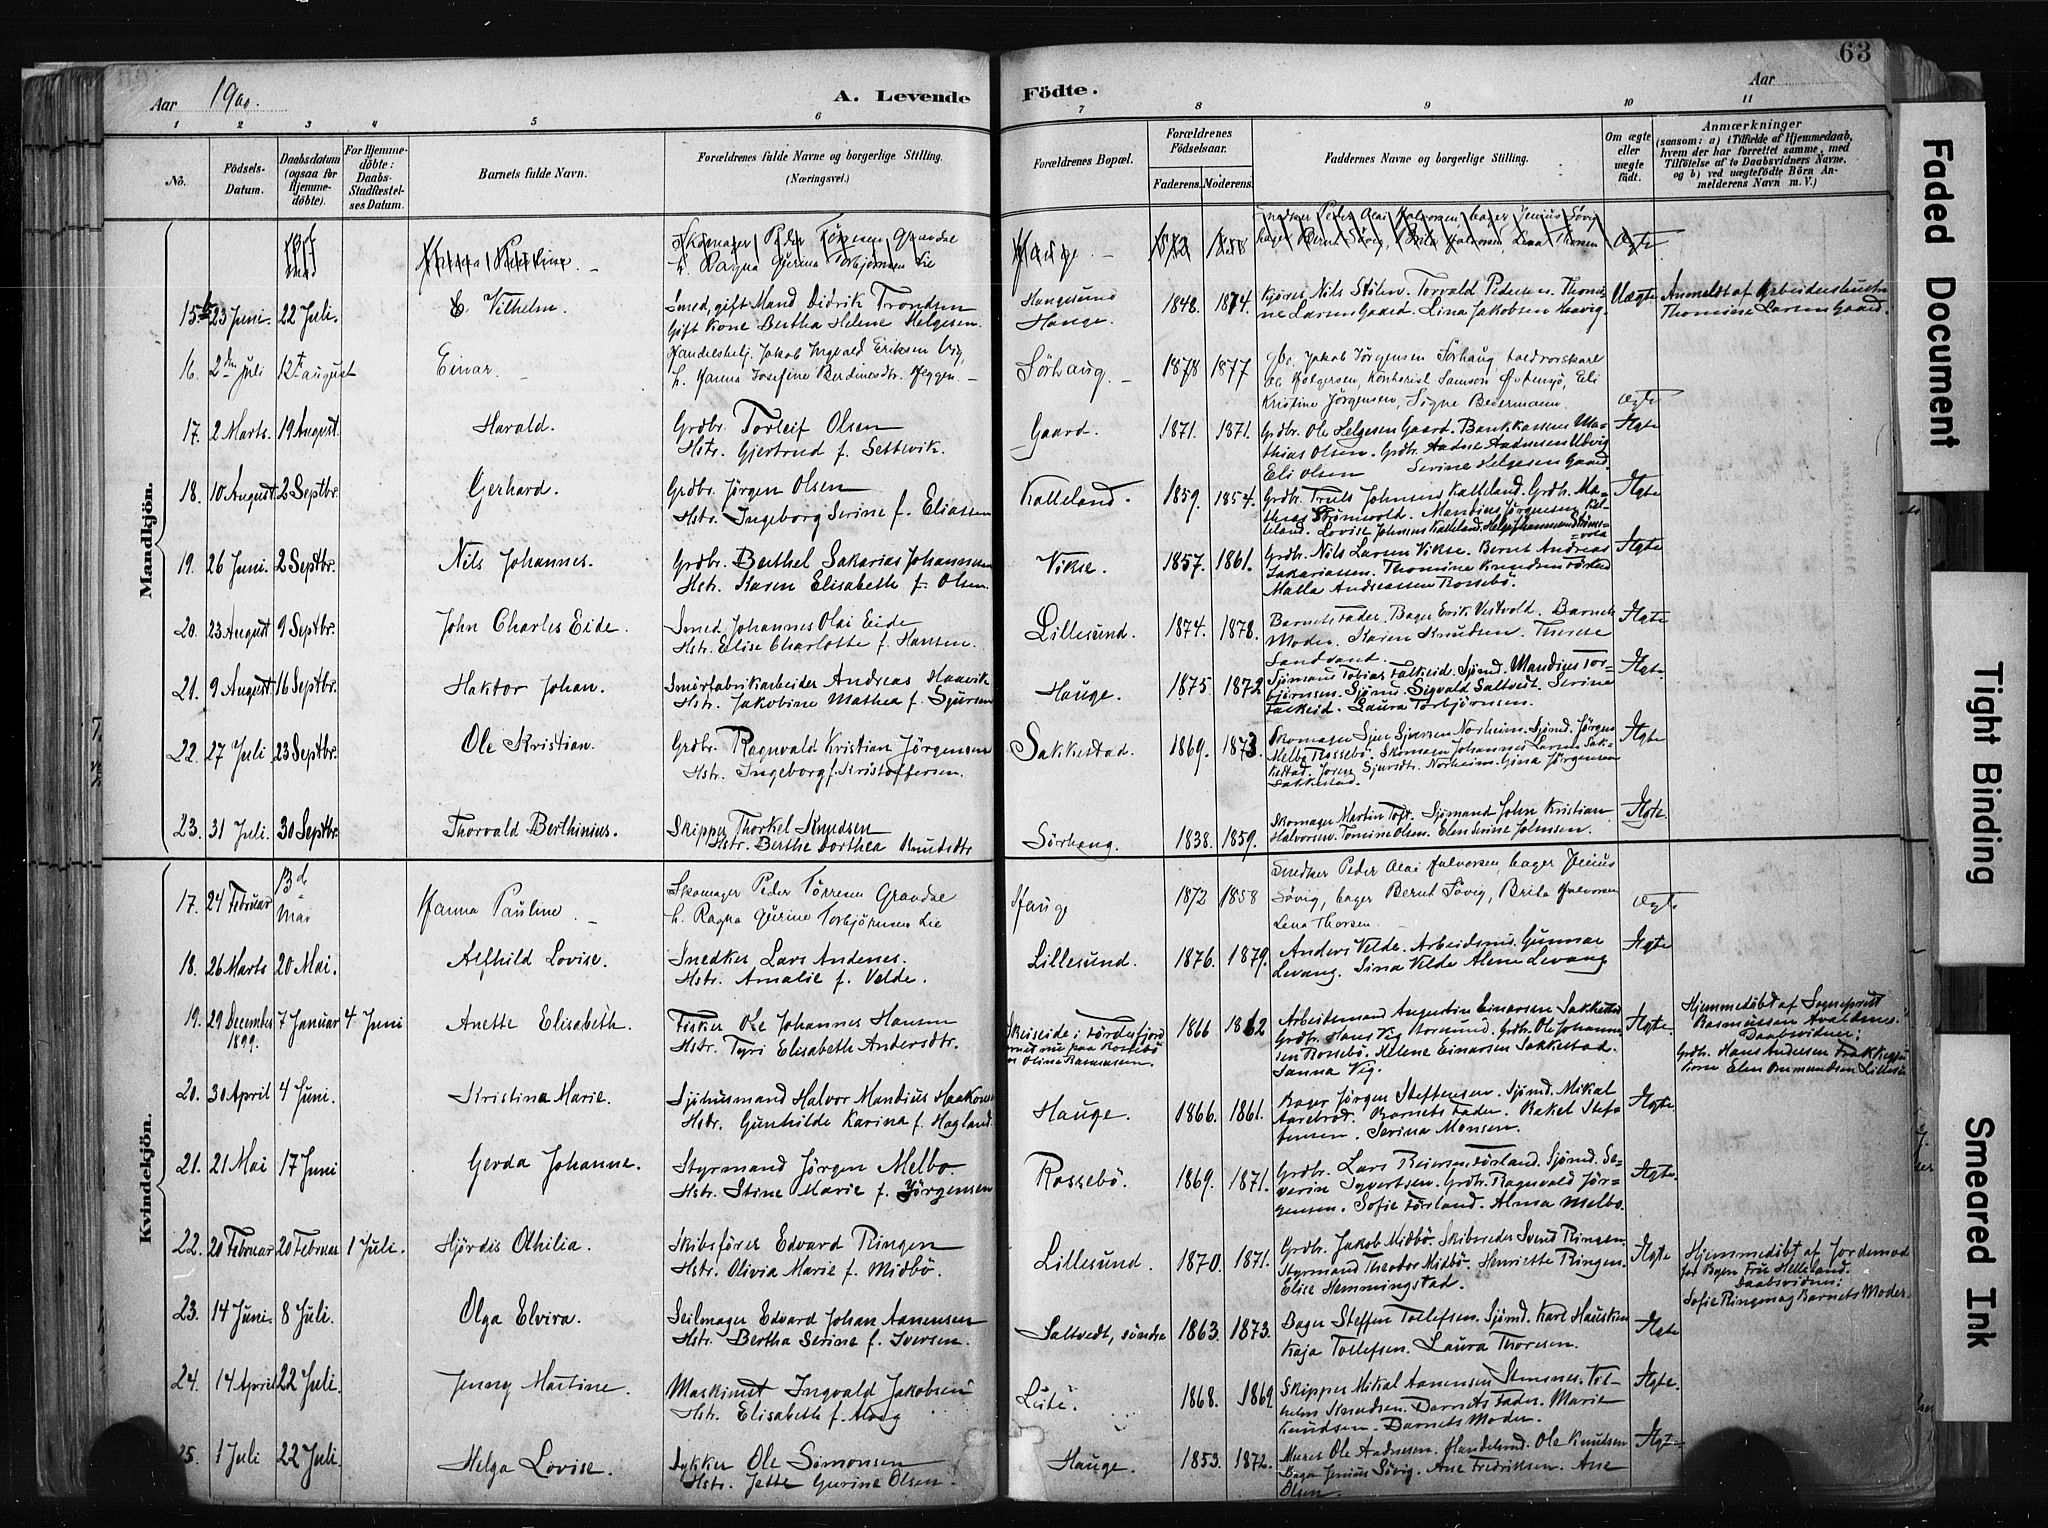 63
Aar 1900.
A. Levende Födte.
Aar
1 2 3 4 5 6 7 8 9 10 11
No.
Födsels-Datum.
Daabsdatum (ogsaa for Hjemmedöbte).
For Hjemmedöbte: Daabs-Stadfæstelses Datum.
Barnets fulde Navn.
Forældrenes fulde Navne og borgerlige Stilling. (Næringsvei.)
Forældrenes Bopæl.
Forældrenes Födselsaar.
Faderens. Moderens.
Faddernes Navne og borgerlige Stilling.
Om ægte eller uægte födt.
Anmærkninger (saasom: a) i Tilfælde af Hjemmedaab, hvem der har forrettet samme, med Tilföielse af to Daabsvidners Navne, og b) ved uægtefödte Börn Anmelderens Navn m. V.)
Mandkjön.
Skomager Peder Tørresen Grandal
h. Ragna Gurina Torbjørnsen Lie
Hauge.
15 23 Juni. 22 Juli. Vilhelm. Smed, gift Mand Didrik Trondsen
Gift Kone Bertha Helene Helgesen.
Haugesund
Hauge. 1848. 1874. Kjører Nils Stølen. Torvald Pedersen. Thomi-
ne Larsen Gaard. Lina Jakobsen Uægte Anmeldt af
Thomine Larsen Gaard.
16. 2den Juli 12te august Einar. Jakob Ingvald Eriksen
h. Hanna Josefine Berdinesdtr. Heggen.
Sörhaug. 1878 1877 Jakob Jörgensen Sörhaug
Kontorist Samson Eli
Kristine Jörgensen, Signe Beiermann. ægte
17. 2 Marts. 19 August. Harald. Grdbr. Torleif Olsen
Hstr. Gjertrud f. Settevik.
Gaard. 1871. 1871. Grdbr. Ole Helgesen Gaard. Bankkasserer Ma-
thias Olsen. Grdbr. Aadne Aadnesen Udvig
Eli Olsen Serine Helgesen Gaard. Ægte
18. 10 August. 2 Septbr. Gerhard. Grdbr. Jörgen Olsen
Hstr. Ingeborg Serine f. Eliassen
Kalleland. 1859. 1854. Grdbr. Truls Johnsen Kalleland. Grdbr. Ma-
thias Strömsvold. Mandius Jörgensen Kal-
leland. Lovise Johnsen Kalleland. Ægte
19. 26 Juni. 2 Septbr. Nils Johannes. Grdbr. Berthel Sakarias Johannsen
Hstr. Karen Elisabeth f. Olsen
Vikse. 1857. 1861. Grdbr. Nils Larsen Vikse. Bernt Andreas
Sakariassen. Thomine Knudsen
Malla Andreassen Rossebö. Ægte
20. 23 August 9 Septbr. John Charles Eide. Smed Johannes Olai Eide
Hstr. Elise Charlotte f. Hansen.
Lillesund. 1874. 1878. Barnets Fader. Bager Erik Vestvold. Barnets
Moder. Karen Knudsen. Therese
Sandsand. Ægte
21. 9 August 16 Septbr. Haktor Johan. Smörfabrikarbeider Andreas Haavik
Hstr. Jakobine Mathea f. Sjursen
Hauge. 1875. 1872 Sjömand Tobias Falkeid. Sjömd. Mandius Tor-
björnsen. Sjömd. Sigvald Saltveit. Serine
Falkeid. Laura Torbjörnsen. Ægte
22. 27 Juli 23 Septbr. Ole Kristian. Grdbr. Ragnvald Kristian Jörgensen
Hstr. Ingeborg f. Kristoffersen.
Sakkestad. 1869. 1873. Skomager Sjur Sjursen Norheim. Sjömd. Jörgen
Melbo Rossebö. Skomager Johannes Larsen Sak-
kestad. Sjursdtr. Norheim. Gina Jörgensen
Sakkestad. Ægte
23. 31 Juli. 30 Septbr. Thorvald Berthinius. Skipper Thorkel Knudsen
Hstr. Berthe Dorthea Knutsdtr
Sörhaug. 1838. 1859. Skomager Martin Toft. Sjömand John Kristian
Halvorsen. Tomine Olsen. Elen Serine Johnsen. Ægte.
Kvindekjön.
17. 24 Februar 13d Mai Hanna Pauline Skomager Peder Törresen Grandal
h. Ragna Gurine Torbjörnsen Lie
Hauge 1872 1858 Snedker Peder Olai Halvorsen, bager Jenius
Søvig, bager Bernt Søvig, Brita Halvorsen
Lena Thorsen ægte
18. 26 Marts 20 Mai. Alfhild Lovise. Snedker Lars Andenes.
Hstr. Amalie f. Velde.
Lillesund. 1876. 1879. Anders Velde. Arbeidsmd. Gunnar
Levang. Sina Velde Alene Levang Ægte
19. 29 December 1899. 7 Januar 4 Juni Anette Elisabeth. Fisker Ole Johannes Hansen
Hstr. Tyri Elisabeth Andersdtr.
Skeiseide i Fördesfjord 1866 1862 Arbeidsmand Augustin Einarsen Sakkestad
Grdbr. Hans Vig Grdbr. Ole Johanne-
sen Rossebö. Helene Einarsen Sakkestad.
Sanna Vig. Ægte. Hjemmedöbt af Sogneprest
Rasmussen Avaldsnes.
Daabsvidner:
Grdbr. Hans Andersen
Kone Elen Aumundsen
20. 30 April 4 Juni. Kristina Marie. Sjöhusmand Halvor Mandius Haakonsen
Hstr. Gunhilde Karina f. Hagland.
Hauge. 1866. 1861. Bager Jörgen Steffensen. Sjömd. Mikal
Aarebrod. Barnets Fader. Rakel Stef-
fensen. Serina Monsen. Ægte.
21. 21 Mai 17 Juni Gerda Johanne. Styrmand Jörgen Melbo.
Hstr. Stine Marie f. Jörgensen
Rossebö. 1869. 1871. Grdbr. Lars Reiersen Förland. Sjömd. Se-
verin Syvertsen. Grdbr. Ragnvald Jör-
gensen. Sofie Förland. Alma Melbo. Ægte.
22. 20 Februar 20 Februar 1 Juli. Hjördis Othilia. Skibsförer Edvard Ringen
Hstr. Olivia Marie f. Midbö.
Lillesund. 1870. 1871. Grdbr. Jakob Midbö. Skibsreder Svend Ringen.
Styrmand Theodor Midbö. Henriette Ringen.
Elise Hemmingstad. Ægte Hjemmedöbt af Jordemod
for Byen Fru Helleland.
Daabsvidner:
Sofie Ringen og Barnets Moder.
23. 14 Juni. 8 Juli. Olga Elvira. Seilmager Edvard Johan Aanensen
Hstr. Bertha Serine f. Iversen.
Saltvedt, söndre 1863. 1873. Bager Steffen Tollefsen. Sjömd. Karl Hausken
Kaja Tollefsen. Laura Thoresen. Ægte
24. 14 April 22 Juli. Jenny Martine. Maskinist Ingvald Jakobsen
Hstr. Elisabeth f. Alvsg
Lute. 1868. 1869 Skipper Mikal Aanensen Stensnes. Vil-
helm Knudsen. Barnets Fader. Marie
Knudsen. Barnets Moder. Ægte.
25. 1 Juli 22 Juli. Helga Lovise. Dykker Ole Simonsen
Hstr. Jette Gurine Olsen.
Hauge. 1853. 1872. Murer Ole Aadnesen. Handelsmd. Ole Knudsen
Bager Jenius Søvig. Ane Fredriksen. Ane
Olsen. Ægte
Faded Document
Tight Binding
Smeared Ink